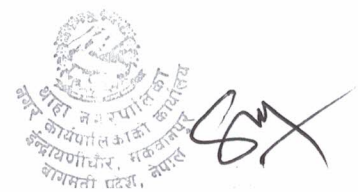 थाहा नगरपालिका
नगर कार्यपालिकाको कार्यालय
इन्द्रायणीचौर, मकवानपुर
बागमती प्रदेश, नेपाल